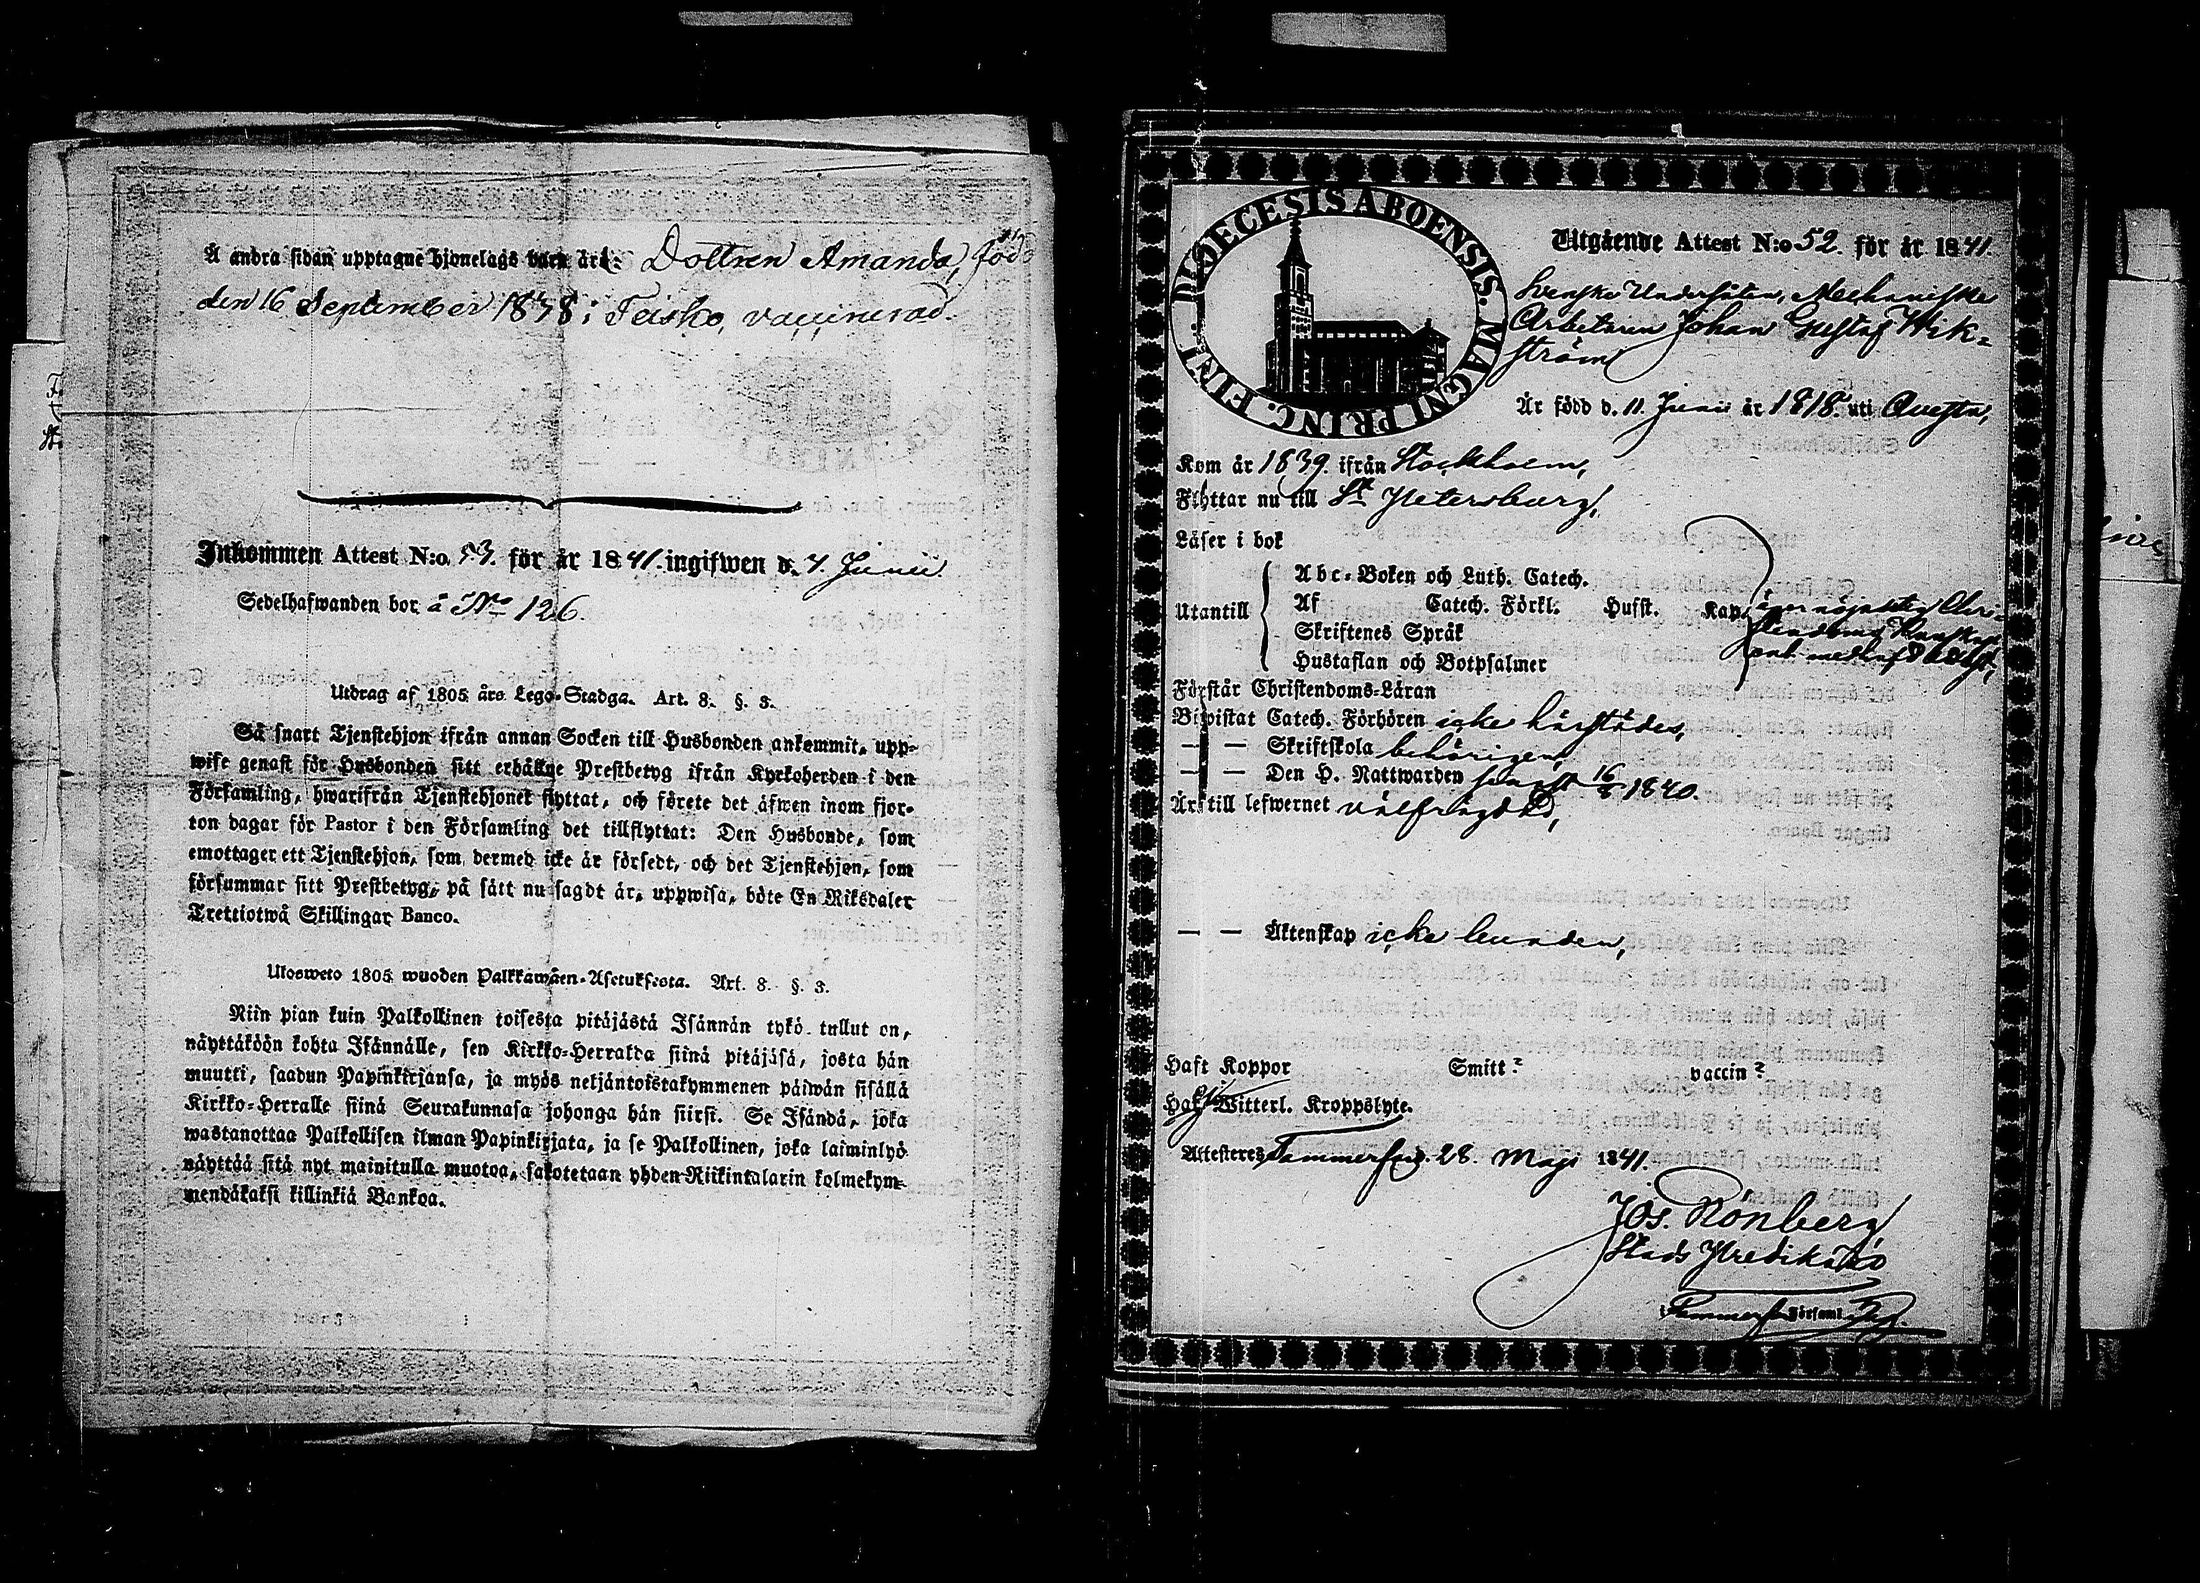 Å andra sidan upptagne hjonelags barn äro: Dottren Amanda, född
den 16 September 1838 i Teisko, vaccinerad.
Inkommen Attest N:o 53. för år 1841. ingifwen d. 4 Junii.
Sedelhafwanden bor å No 126.
Utdrag af 1805 års Lego-Stadga. Art. 8. §. 3.
Så snart Tjenstehjon ifrån annan Socken till Husbonden ankommit, upp-
wise genast för Husbonden sitt erhållne Prestbetyg ifrån Kyrkoherden i den
Församling, hwarifrån Tjenstehjonet flyttat, och förete det äfwen inom fjor-
ton dagar för Pastor i den Församling det tillflyttat: Den Husbonde, som
emottager ett Tjenstehjon, som dermed icke är försedt, och det Tjenstehjon, som
försummar sitt Prestbetyg, på sätt nu sagdt är, uppwisa, böte En Riksdaler
Trettiotwå Skillingar Banco.
Ulosweto 1805 wuoden Palkkawäen-Asetuksesta. Art. 8. §. 3.
Niin pian kuin Palkollinen toisesta pitäjästä Isännän tykö tullut on,
näyttäköön kohta Isännälle, sen Kirkko-Herralda siinä pitäjäsä, josta hän
muutti, saadun Papinkirjansa, ja myös neljäntoistakymmenen päiwän sisällä
Kirkko-Herralle siinä Seurakunnasa johonga hän siirsi. Se Isändä, joka
wastanottaa Palkollisen ilman Papinkirjata, ja se Palkollinen, joka laiminlyö
näyttää sitä nyt mainitulla muotoa, sakotetaan yhden Riikintalarin kolmekym-
mendäkaksi killinkiä Bankoa.
DIOECESIS ABOENSIS. MAGNI PRINC. FINL.
Utgående Attest N:o 52. för år 1841.
Svenske Undersåten, Mechaniske
Arbetaren Johan Gustaf Wik-
ström
Är född d. 11. Junii år 1818. uti Avesta,
Kom år 1839. ifrån Stockholm,
Flyttar nu till St Petersburg,
Läser i bok
Abc-Boken och Luth. Catech.
Utantill Af Catech. Förkl. Husst. Kap.
äger nöjaktig Chri-
stendoms Kunskap
Skriftenes Språk
Hustaflan och Botpsalmer
Förstår Christendoms-Läran
Biwistat Catech. Förhören icke härstädes,
— — Skriftskola behörigen,
— — Den H. Nattwarden senast 16/8 1840.
Är till lefwernet välfrägdad,
— — Äktenskap icke bunden,
Haft Koppor Smitt? vaccin?
Haf ej Witterl. Kroppslyte.
Attesteres Tammerfors d. 28. Maji 1841.
Jos. Rönberg
Stads Predikant
i Tammerf. Församl.